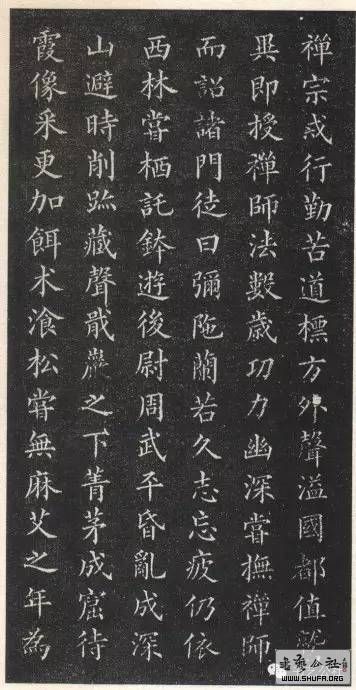 禪宗戒行勤苦道標方外聲溢國都值
異即授禪師法數歲功力幽深嘗撫禪師
而詔諸門徒曰彌陁蘭若久志忘疲仍依
西林嘗栖託鉢遊後尉周武平昏亂成深
山避時削跡藏聲戢巖之下菁茅成窟待
霞像采更加餌术飡松嘗無麻艾之年為
書藝公社
WWW.SHUFA.ORG